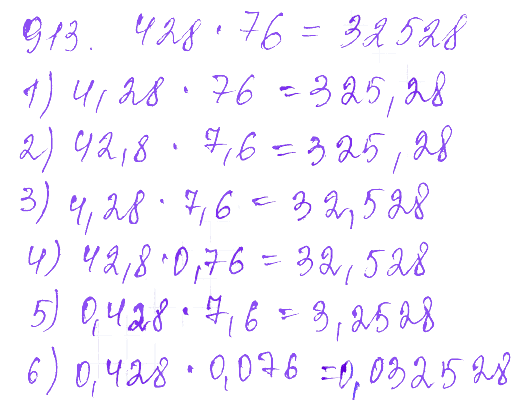 913. 428 · 76 = 32528
1) 4,28 · 76 = 325,28
2) 42,8 · 7,6 = 325,28
3) 4,28 · 7,6 = 32,528
4) 42,8 · 0,76 = 32,528
5) 0,428 · 7,6 = 3,2528
6) 0,428 · 0,076 = 0,032528